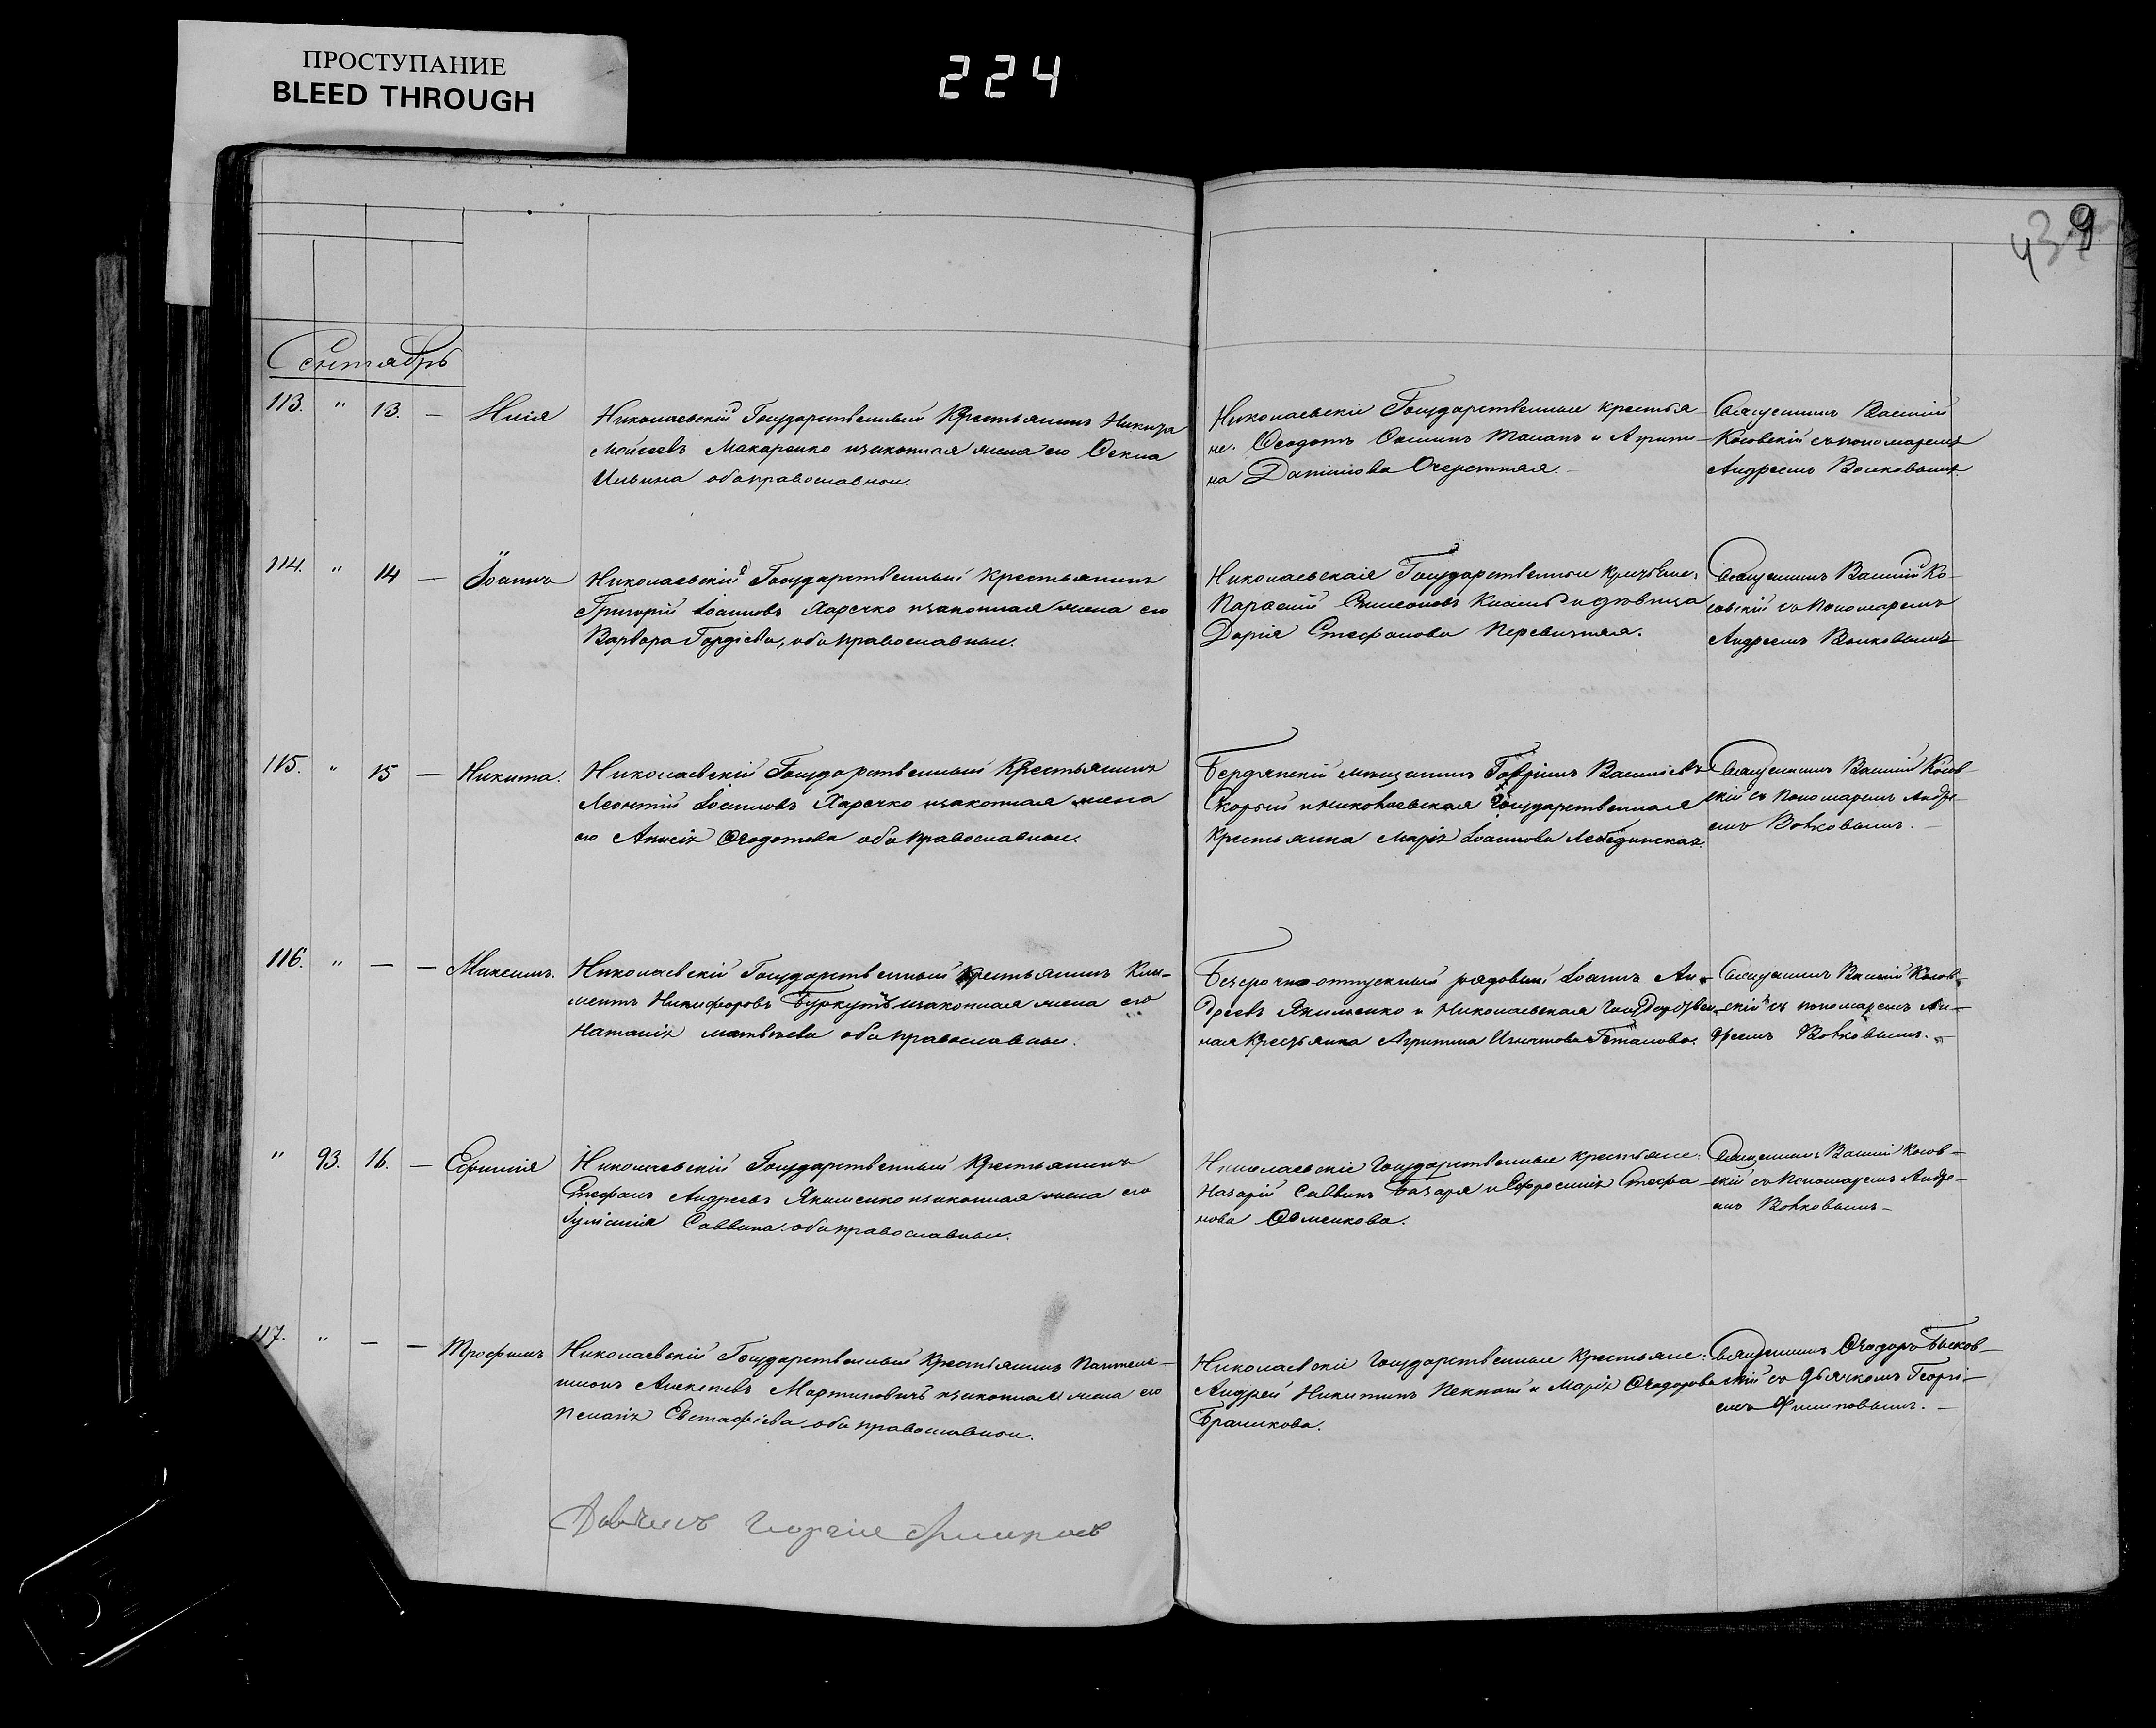 ПРОСТУПАНИЕ
BLEED THROUGH
224
439
Сентябрь
113. " 13. —
Николаевскій Государственный Крестьянинъ Никита
Моѵсеевъ Макаренко изаконная жена его Ѳекла
Ильина оба православнои.
Николаевскіе Государственные крестья-
не: Ѳеодотъ и Агрипи-
на Даніилова Очеретная.
Священникъ Василій
Косовскій съ пономаремъ
Андреемъ Волковымъ
114. " 14 — Іоаннъ
Николаевскій Государственный Крестьянинъ
Григорій Іоанновъ Харечко изаконная жена его
Варвара Гордіева, оба православные.
Николаевскаіе Государственнои
Парасій Симеоновъ и дѣвица
Дарія Стефанова
Священникъ Василій Ко-
совскій съ Пономаремъ
Андреемъ Волковымъ
115. " 15 — Никита.
Николаевскій Государственный Крестьянинъ
Леонтій Іоанновъ Харечко изаконная жена
его Анисія Ѳеодотова оба православнои.
Бердянскій мѣщанинъ Гавріилъ Василіевъ
Скорый и Николаевская Государственная
Крестьянка Марія Іоаннова Лебединская.
Священникъ Василій Косов-
скій съ Пономаремъ Андре-
емъ Волковымъ. —
116. " — — Максимъ.
Николаевскій Государственный Крестьянинъ Кли-
ментъ Никифоровъ Буркутъ изаконная жена его
Наталія Матвѣева оба православные.
Безсрочно-отпускный рядовый Іоаннъ Ан-
дреевъ Якименко и Николаевская Государствен-
ная Крестьянка Агрипина Игнатова
Священникъ Василій Косов-
скій съ пономаремъ Ан-
дреемъ Волковымъ. —
" 93. 16. — Евфимія
Николаевскій Государственный Крестьянинъ
Стефанъ Андреевъ Якименко изаконная жена его
Іуліанія Саввина. оба православные.
Николаевскіе Государственные крестьяне:
Назарій Саввинъ Базаря и Евфросинія Стефа-
нова
Священникъ Василій Косов-
скій съ Пономаремъ Андре-
емъ Волковымъ —
117. " — — Трофимъ
Николаевскій Государственный Крестьянинъ Пантеле-
имонъ Алексѣевъ Мартиновичъ изаконная жена его
Пелагія Евстафіева оба православнои.
Николаевскіе Государственные Крестьяне:
Андрей Никитинъ и Марія Ѳеодорова
Браникова.
Священникъ Ѳеодоръ Быков-
скій съ дьячкомъ Георгі-
емъ Филиповымъ. —